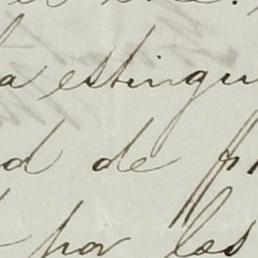 a estingu
d de fr
por los